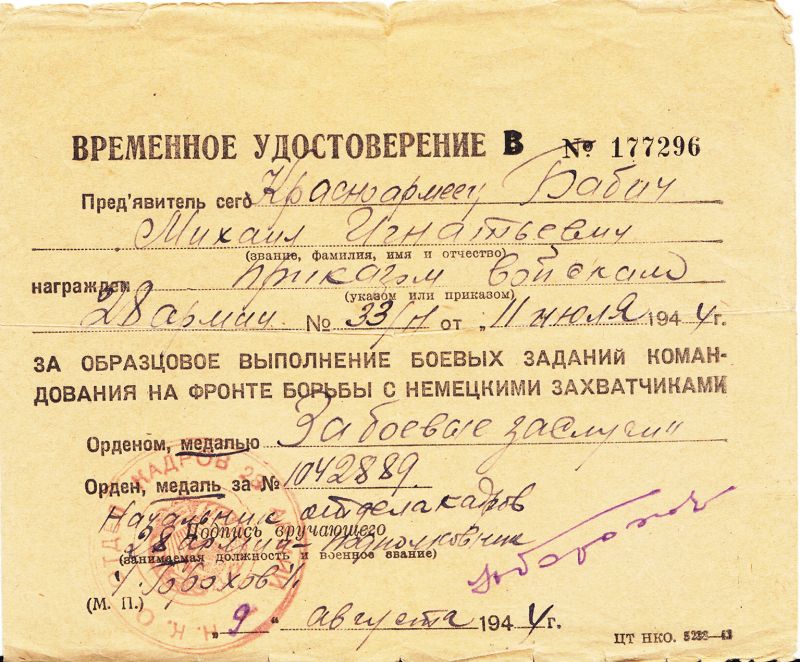 ВРЕМЕННОЕ УДОСТОВЕРЕНИЕ В № 177296
Пред'явитель сего Красноармеец Бабич
Михаил Игнатьевич
(звание, фамилия, имя и отчество)
награжден приказом войскам
(указом или приказом)
28 армии № 33/н от „11 июля 1944г.
ЗА ОБРАЗЦОВОЕ ВЫПОЛНЕНИЕ БОЕВЫХ ЗАДАНИЙ КОМАН-
ДОВАНИЯ НА ФРОНТЕ БОРЬБЫ С НЕМЕЦКИМИ ЗАХВАТЧИКАМИ
Орденом, медалью За боевые заслуги"
Орден, медаль за № 1042889.
Начальник отдела кадров
Подпись вручающего
28 армии – подполковник
(занимаемая должность и военное звание)
(М. П.)
„9" августа 1944г.
ЦТ НКО. 5232—43
ОТДЕЛ КАДРОВ 28 АРМИИ Н. К. О.